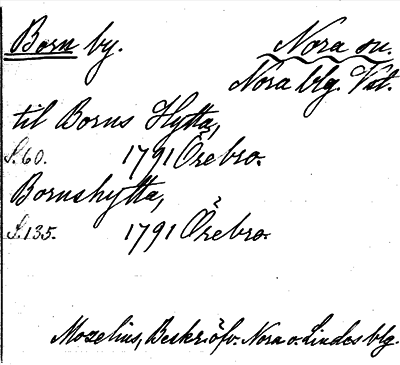 Born by. Nora sn.
Nora blg. Vst.
til Borns Hytta,
S. 60. 1791 Örebro.
Bornshytta,
S. 135. 1791 Örebro.
Mozelius, Beskr. öfv. Nora o. Lindes blg.